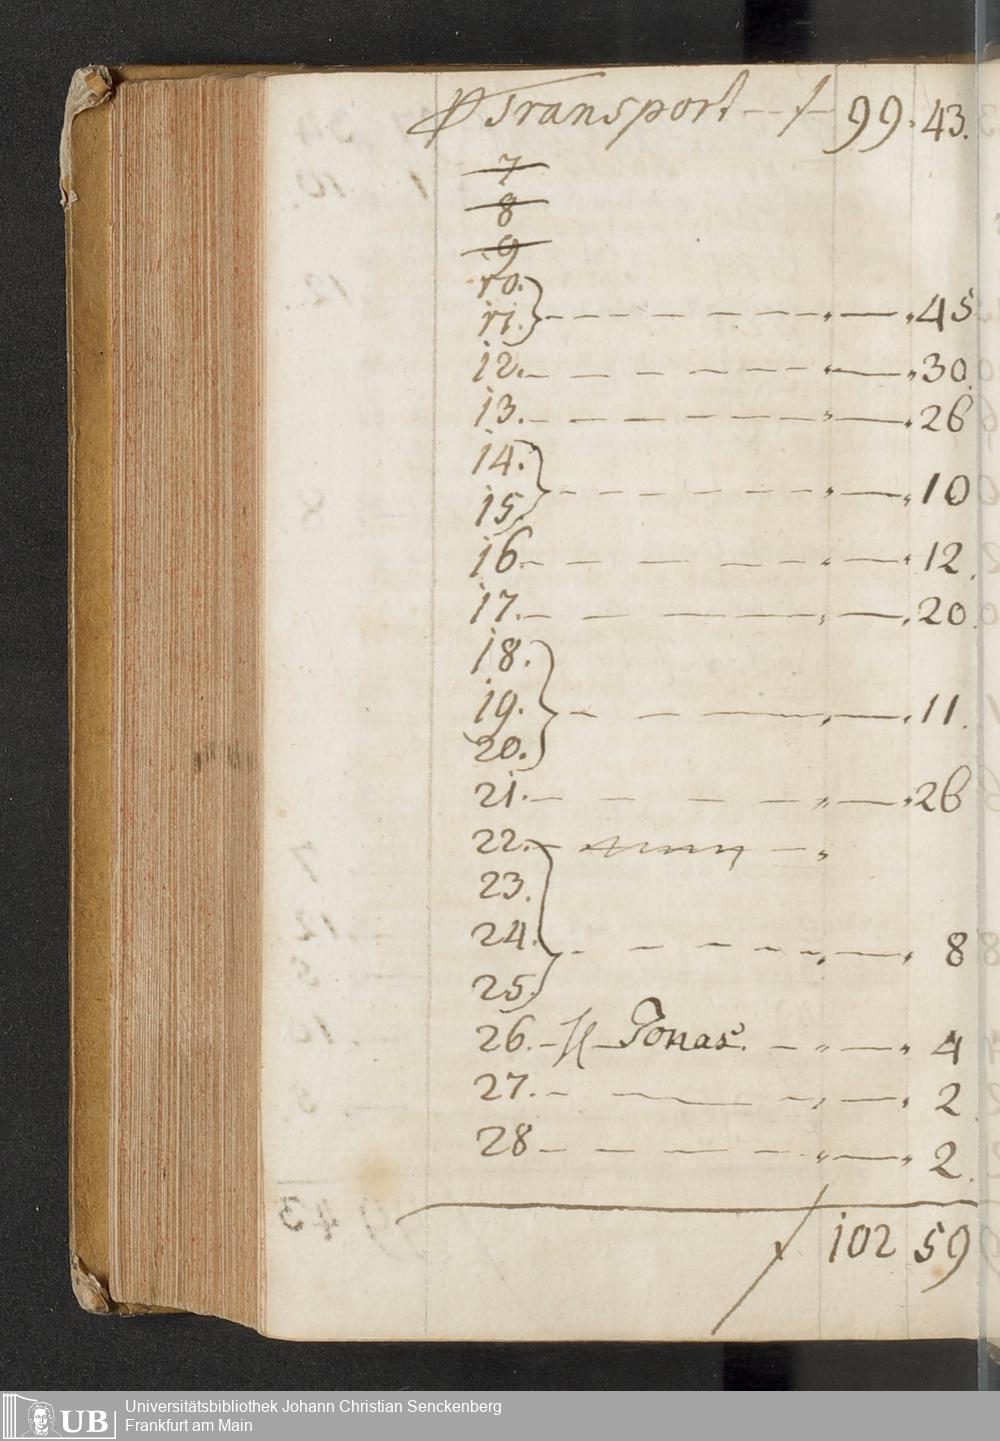 Transport — f 99. 43.
7
8
9
10.
11. — — — — — — " — " 45
12. — — — — — " — " 30.
13. — — — — — " — " 26
14.
15. — — — — — " — " 10
16. — — — — " — " 12.
17. — — — " — " 20.
18.
19. — — — " — " 11.
20.
21. — — — — " — " 26
22. — "
23.
24. — — — — " — " 8
25.
26. — Jonas. — " — " 4
27. — — — " — " 2
28 — — — — " — " 2.
f 102 59
UB Universitätsbibliothek Johann Christian Senckenberg
Frankfurt am Main